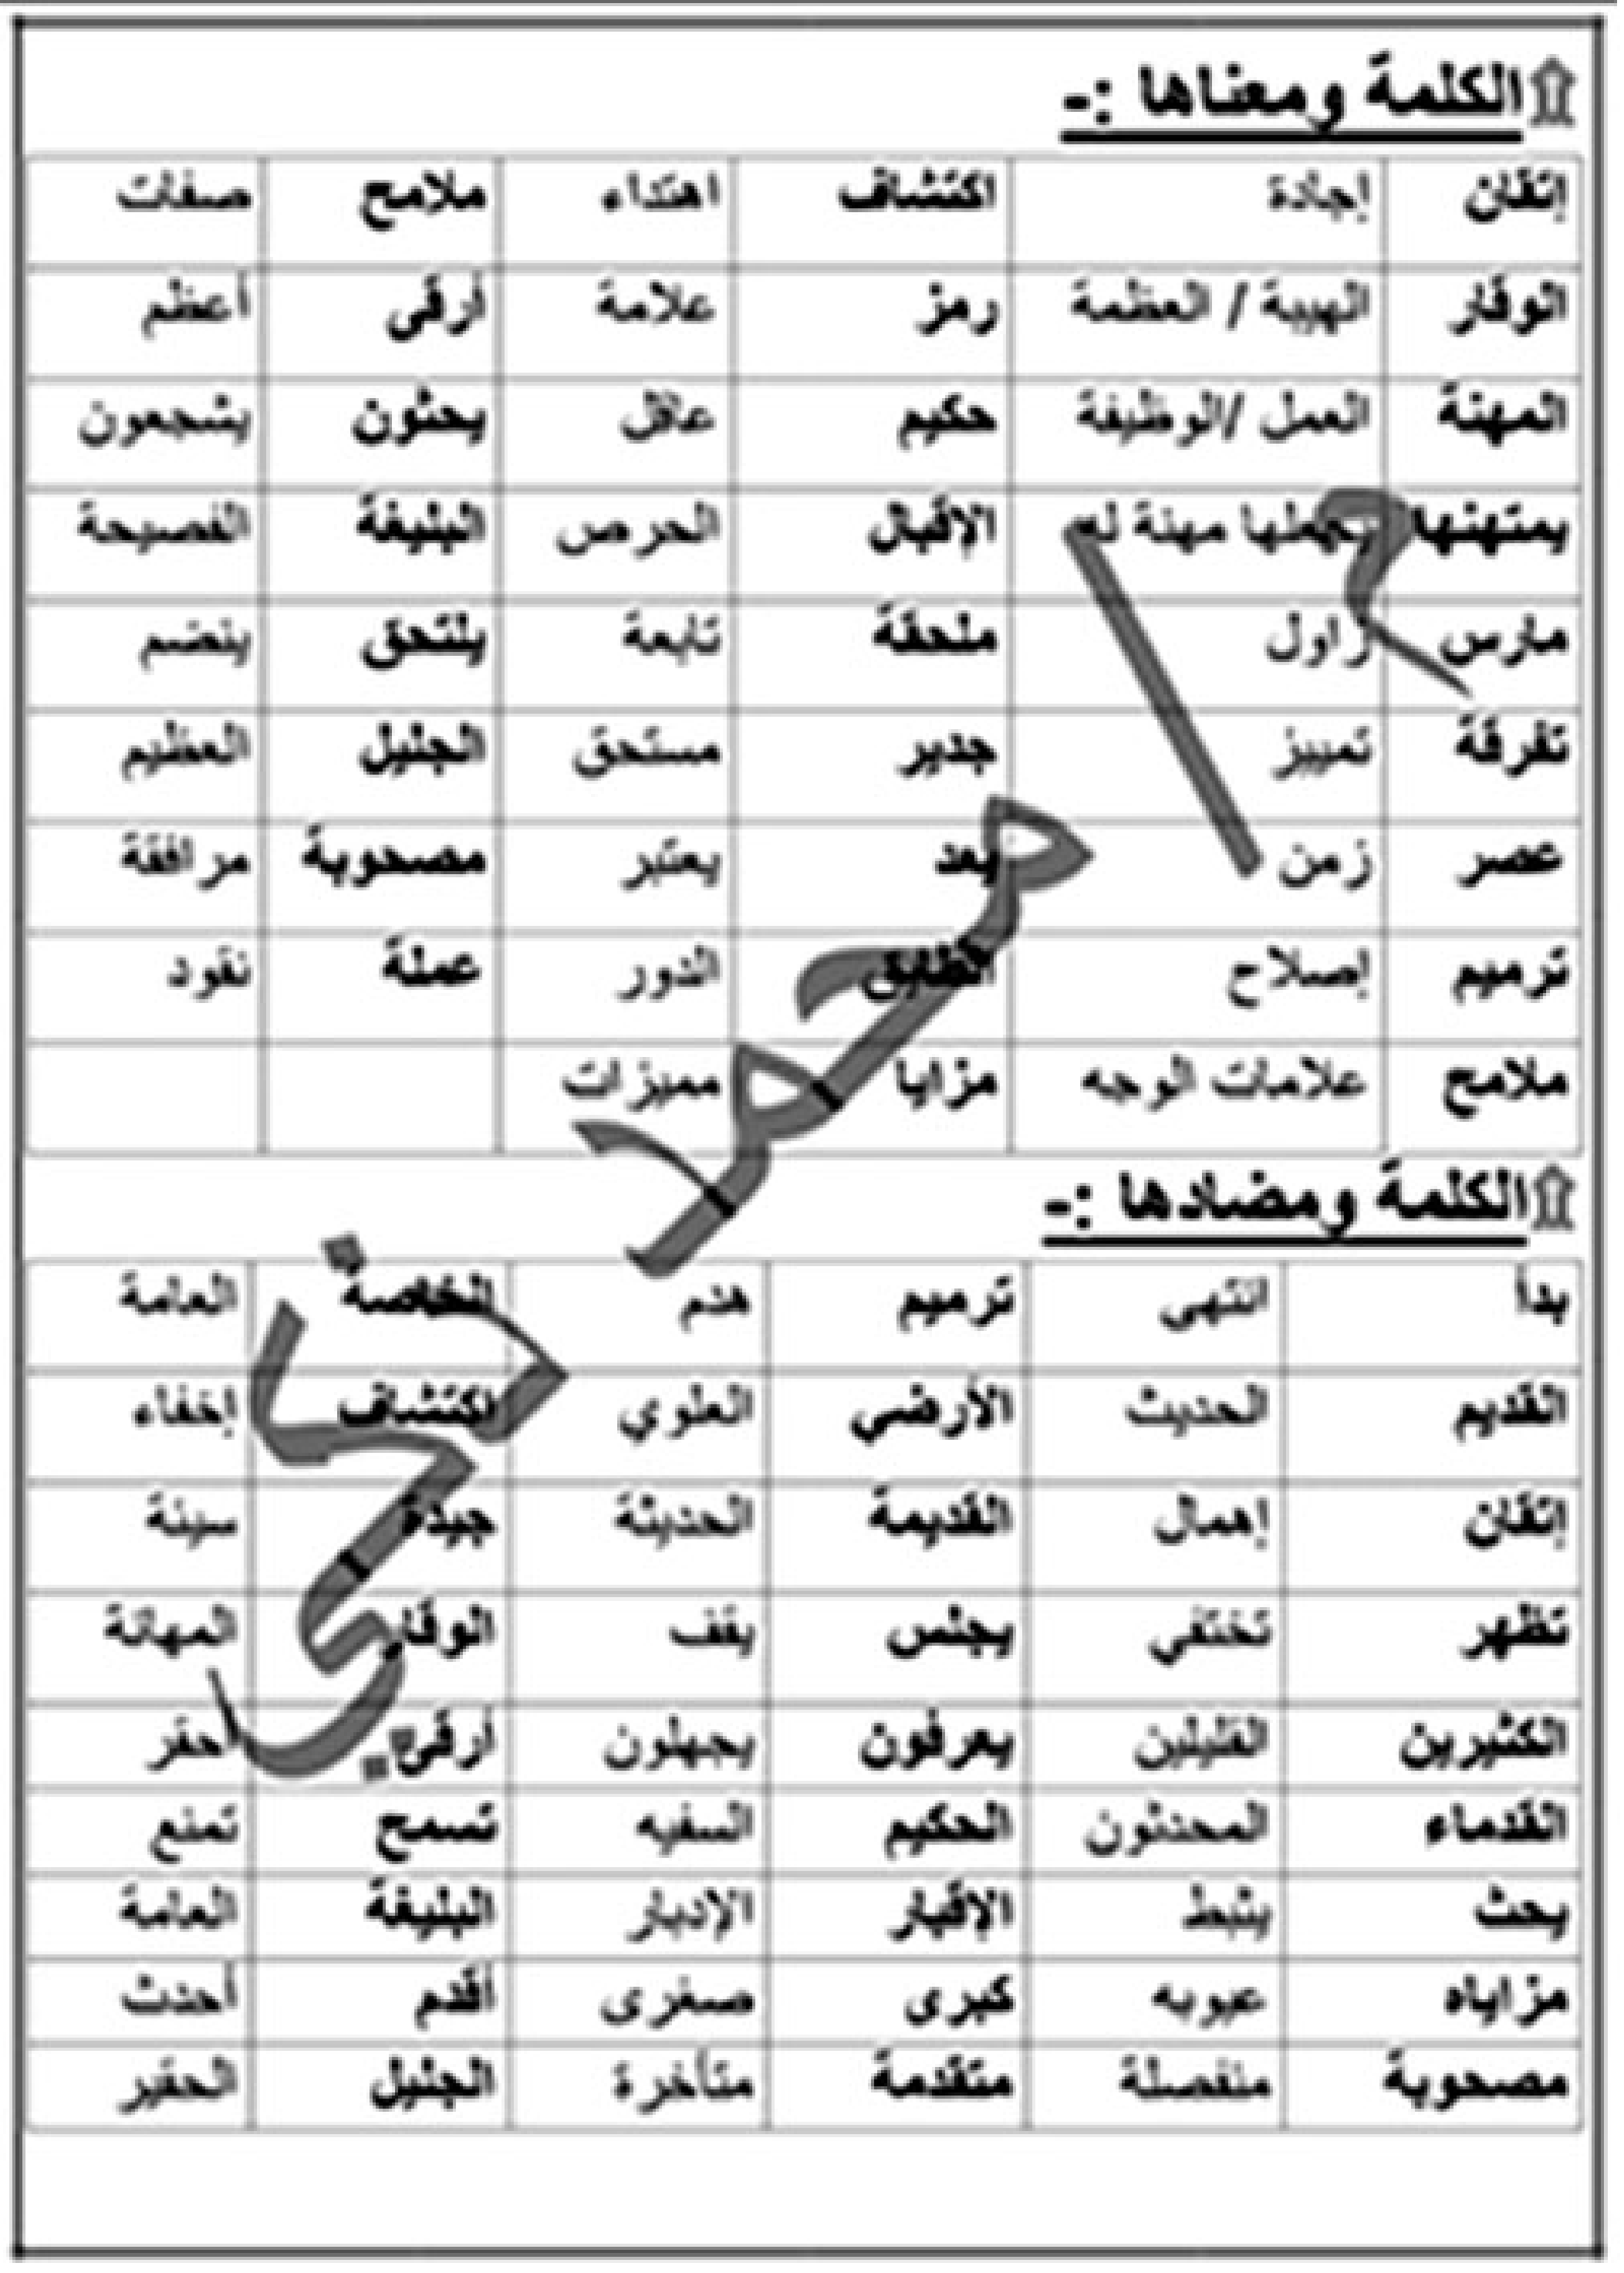 ۩الكلمة ومعناها :-
إتقان إجادة اكتشاف اهتداء ملامح صفات
الوقار الهيبة / العظمة رمز علامة أرقى أعظم
المهنة العمل /الوظيفة حكيم عاقل يحثون يشجعون
يمتهنها يجعلها مهنة له الإقبال الحرص البليغة الفصيحة
مارس زاول ملحقة تابعة يلتحق ينضم
تفرقة تمييز جدير مستحق الجليل العظيم
عصر زمن يعد يعتبر مصحوبة مرافقة
ترميم إصلاح الطابق الدور عملة نقود
ملامح علامات الوجه مزايا مميزات
۩الكلمة ومضادها :-
بدأ انتهى ترميم هدم الخاصة العامة
القديم الحديث الأرضي العلوي اكتشاف إخفاء
إتقان إهمال القديمة الحديثة جيدة سيئة
تظهر تختفي يجلس يقف الوقار المهانة
الكثيرين القليلين يعرفون يجهلون أرقى أحقر
القدماء المحدثون الحكيم السفيه تسمح تمنع
يحث يثبط الإقبار الإدبار البليغة العامة
مزاياه عيوبه كبرى صغرى أقدم أحدث
مصحوبة منفصلة متقدمة متأخرة الجليل الحقير
م / محمد